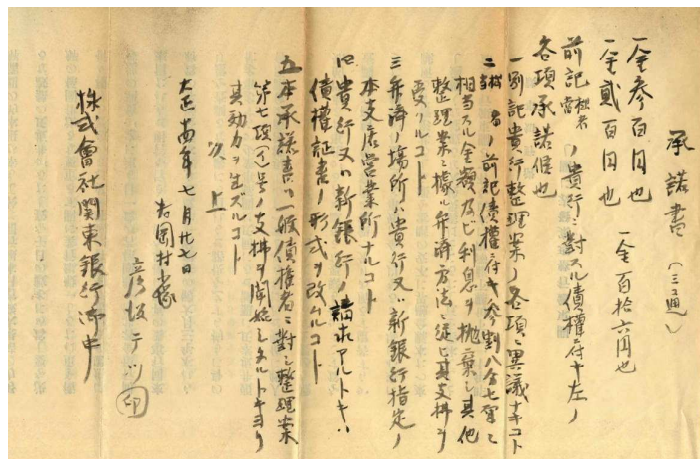 承諾書 (三通)
一金参百円也 一金百拾六円也
一金貳百円也
前記拙者当ノ貴行ニ対スル債權ニ付キ左ノ
各項承諾候也
一別記貴行整理案ノ各項ニ異議ナキコト
二拙者当ノ前記債權ニ付キ参割八分七厘ニ
相当スル金額及ビ利息ヲ抛棄シ其他
整理案ニ據ル弁済方法ニ従ヒ其支拂ヲ
受クルコト
三弁済ノ場所ハ貴行又ハ新銀行指定ノ
本支店営業所ナルコト
四貴行又ハ新銀行ノ請求アルトキハ
債權証書ノ形式ヲ改ムルコト
五本承諾書ハ一般債権者ニ対シ整理案
第七項(イ)号ノ支拂ヲ開始シタルトキヨリ
其効力ヲ生ズルコト
以上
大正 年七月廿七日
岡村
テツ 印
株式會社関東銀行御中